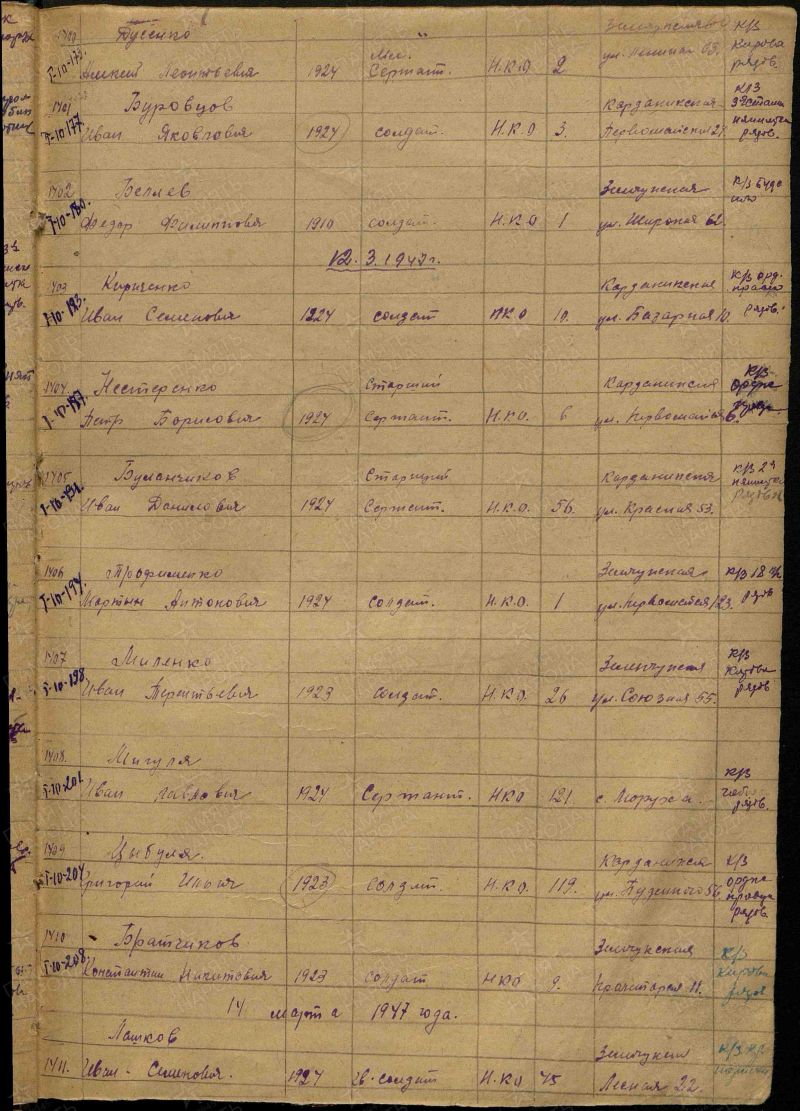 1700 Бусенко Зеленчукская к/з
I-10-173. Алексей Леонтьевич 1924 Мл. Сержант. Н.К.О 2 ул. Ленина 63. Кирова рядов.
1701 Буровцов Карданикская к/з
I-10-177 Иван Яковлевич 1924 солдат. Н.К.О 3. Первомайская 21. рядов.
1702 Беляев Зеленчукская к/з Буде
I-10-180. Федор Филиппович 1910 солдат. Н.К.О 1 ул. Широкая 62.
12. 3. 1947г.
1703 Кириченко Карданикская к/з орд.
I-10-183. Иван Семенович 1924 солдат НКО 10. ул. Базарная 10. рядов.
1704. Нестеренко Старший Карданикская к/з
I-10-187. Петр Борисович 1924 Сержант. Н.К.О. 6 ул. Первомайская 6.
1705 Буланчиков Старший Карданикская к/з
I-10-191. Иван Данилович 1924 Сержант. Н.К.О. 56. ул. Красная 53. рядовой
1706 Трофименко Зеленчукская к/з 18
I-10-194. Мартын Антонович 1924 солдат. Н.К.О. 1 ул. Первомайская 123. рядов
1707 Миленко Зеленчукская к/з
I-10-198 Иван Терентьевич 1923 солдат. Н.К.О. 26 ул. Союзная 55. Кирова рядов
1708. Мигуля к/з
I-10-201. Иван Павлович 1924 Сержант. НКО 121. с. Маруха. рядов.
1709 Цыбуля. Карданикская к/з
I-10-204 Григорий Ильич 1923 солдат. Н.К.О. 119. ул. Буденного 56. рядов.
1710 Братчиков Зеленчукская к/з
I-10-208. Константин Никитович 1923 солдат НКО 9. 11. Кирова рядов
14 марта 1947 года.
Лашков Зеленчукская к/з
1711. Иван Семенович. 1924 гв. солдат Н.К.О 45 Лесная 22.